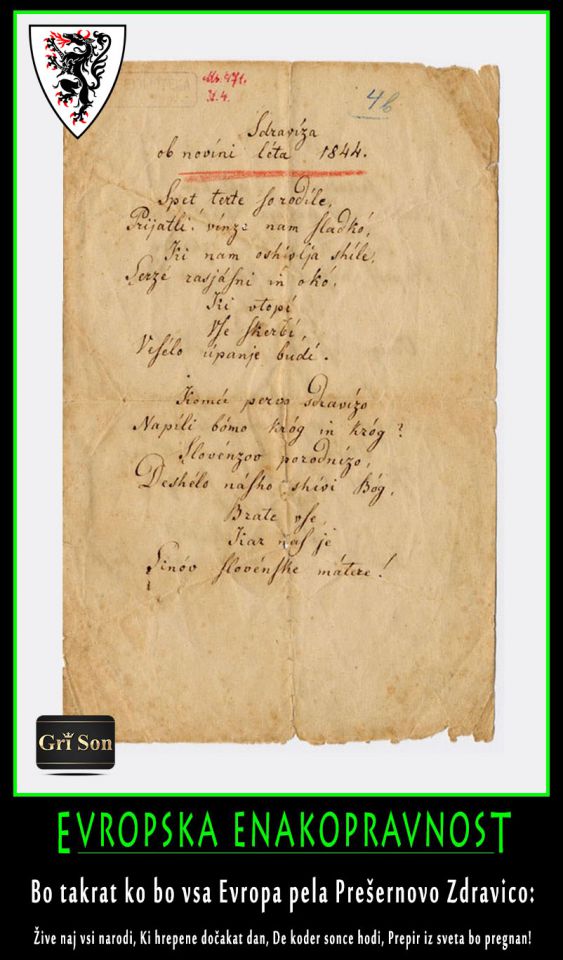 Ms. 471.
4b
Sdravíza
ob novíni léta 1844.
Spet terte ſo rodíle,
Prijatli! vínze nam ſladkó,
Ki nam oshívlja shíle,
Serzé rasjáſni in okó,
Ki vtopí
Vſe ſkerbí,
Veſélo úpanje budí.
Komú pervo sdravízo
Napíli bómo króg in króg?
Slovénzov porodnízo,
Deshélo náſho shívi Bóg,
Brate vſe,
Kar naſ je
Sinóv ſlovénſke mátere!
Gri Son
EVROPSKA ENAKOPRAVNOST
Bo takrat ko bo vsa Evropa pela Prešernovo Zdravico:
Žive naj vsi narodi, Ki hrepene dočakat dan, De koder sonce hodi, Prepir iz sveta bo pregnan!